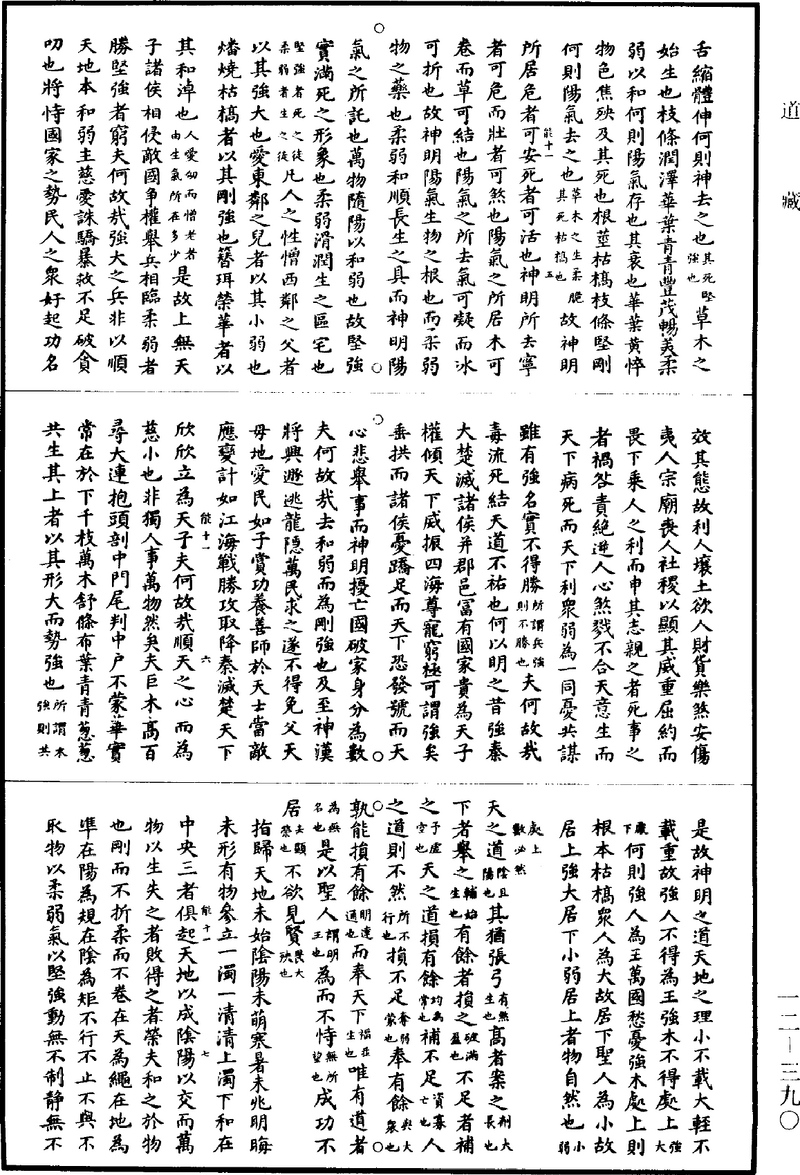 道藏
舌縮體伸何則神去之也其死堅強也草木之
始生也枝條潤澤華葉青青豐茂暢美柔
弱以和何則陽氣存也其衰也華葉黃悴
物色焦殃及其死也根莖枯槁枝條堅剛
何則陽氣去之也草木之生柔脆其死枯槁也故神明
能十一 五
所居危者可安死者可活也神明所去寧
者可危而壯者可煞也陽氣之所居木可
卷而草可結也陽氣之所去氣可凝而冰
可折也故神明陽氣生物之根也而柔弱
物之藥也柔弱和順長生之具而神明陽
氣之所託也萬物隨陽以和弱也故堅強
實滿死之形象也柔弱滑潤生之區宅也
堅強者死之徒柔弱者生之徒凡人之性憎西鄰之父者
以其強大也愛東鄰之兒者以其小弱也
燔燒枯槁者以其剛強也簪珥榮華者以
其和淖也人愛幼而憎老者由生氣所在多少是故上無天
子諸侯相侵敵國爭權舉兵相臨柔弱者
勝堅強者窮夫何故哉強大之兵非以順
天地本和弱主慈愛誅驕暴救不足破貪
叨也將恃國家之勢民人之衆好起功名
效其態故利人壤土欲人財貨樂煞安傷
夷人宗廟喪人社稷以顯其威重屈約而
畏下乘人之利而申其志親之者死事之
者禍咎責絶逆人心煞戮不合天意生而
天下病死而天下利衆弱為一同憂共謀
雖有強名實不得勝所謂兵強則不勝也夫何故哉
毒流死結天道不祐也何以明之昔強秦
大楚滅諸侯并郡邑富有國家貴為天子
權傾天下威振四海尊寵窮極可謂強矣
垂拱而諸侯憂蹻足而天下恐發號而天
心悲舉事而神明擾亡國破家身分為數
夫何故哉去和弱而為剛強也及至神漢
將興遯逃龍隱萬民求之遂不得免父天
母地愛民如子賞功養善師於天士當敵
應變計如江海戰勝攻取降秦滅楚天下
能十一 六
欣欣立為天子夫何故哉順天之心而為
慈小也非獨人事萬物然矣夫巨木高百
尋大連抱頭剖中門尾判中戶不蒙華實
常在於下千枝萬木舒條布葉青青蔥蔥
共生其上者以其形大而勢強也所謂木強則共
是故神明之道天地之理小不載大輕不
載重故強人不得為王強木不得處上強大
處下何則強人為王萬國愁憂強木處上則
根本枯槁衆人為大故居下聖人為小故
居上強大居下小弱居上者物自然也小弱
處上數必然
天之道陰且陽也其猶張弓有無生也高者案之削大長也
下者舉之輔始生也有餘者損之破滿盈也不足者補
之子虛空也天之道損有餘均為常也補不足資寡亡也人
之道則不然所不行也損不足奪弱棄也奉有餘與大衆也
孰能損有餘明達通也而奉天下福在生也唯有道者
為無名也是以聖人謂明王也為而不恃無所望也成功不
居去顯榮也不欲見賢畏大殃也
指歸天地未始陰陽未萌寒暑未兆明晦
未形有物參立一濁一清清上濁下和在
能十一 七
中央三者俱起天地以成陰陽以交而萬
物以生失之者敗得之者榮夫和之於物
也剛而不折柔而不卷在天為繩在地為
準在陽為規在陰為矩不行不止不與不
取物以柔弱氣以堅強動無不制靜無不
一二－三九〇